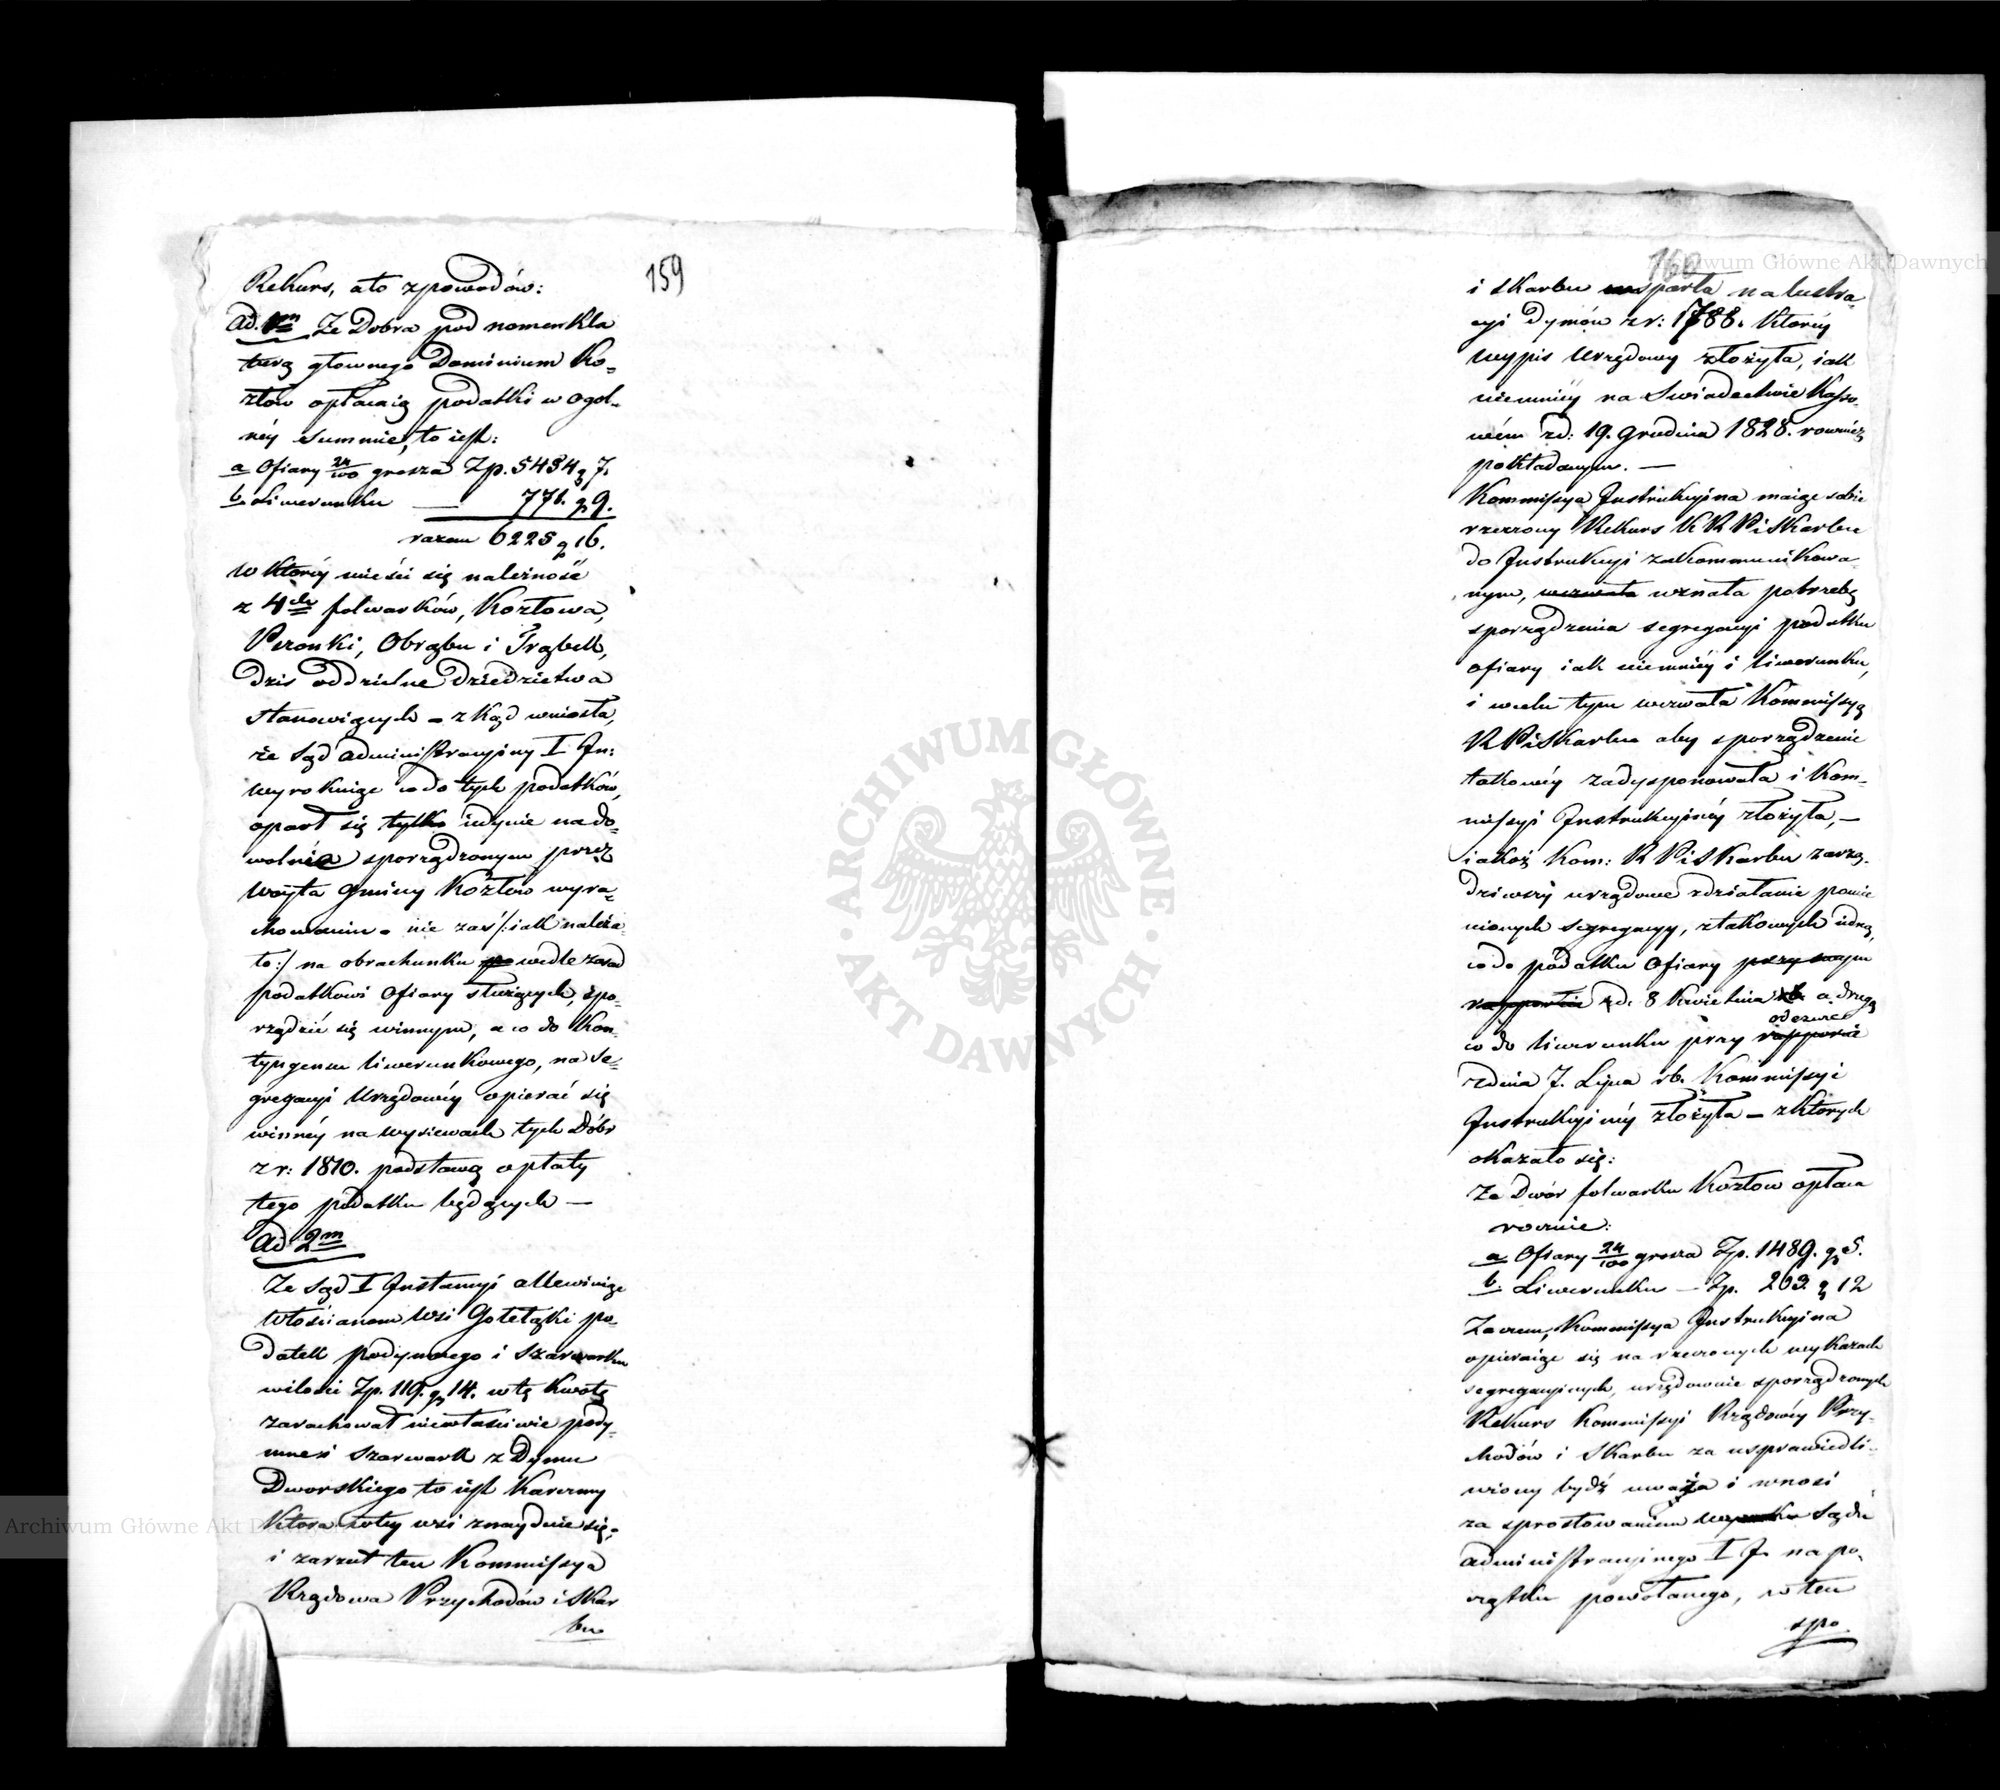 159
Rekurs, a to z powodów:
Ad. 1m Że Dobra pod nomenkla
turą głownego Dominium Ko-
złow opłacaią podatki w ogól-
néy summie, to iest:
a Ofiary 24/100 grosza Zp. 5434 g 7.
b. Liwerunku — 771. g 9.
razem 6225 g 16.
w któréy mieści się należność
z 4ch folwarków, Kozłowa,
Pszonki, Obrąbu i Trąbek,
dziś oddzielne dziedzictwa
stanowiących – zkąd wniosła,
że Sąd administracyiny I In:
wyrokuiąc co do tych podatków,
oparł się tylko iedynie na do-
wolnie sporządzonym przez
Wóyta Gminy Kozłów wyra-
chowaniu – nie zaś /: iak należa-
ło :/ na obrachunku po wedle zasad
podatkowi Ofiary służących, spo-
rządzić się winnym, a co do Kon-
tyngensu liwerunkowego, na Se-
gregacyi Urzędowéy opierać się
winnéy na wysiewach tych Dóbr
z r: 1810. podstawą opłaty
tego podatku będących —
Ad 2m
Że Sąd I Instancyi allewiuiąc
Włościanom Wsi Gołełąki po-
datek podymnego i szarwarku
w ilości Zp. 119. g 14. w tę kwotę
zarachował niewłaściwie pody-
mne i szarwark z Dymu
Dworskiego to iest Karczmy
która w téy wsi znayduie się,
i zarzut ten Kommissya
Rządowa Przychodów i Skar
bu
160
i Skarbu wsparła na lustra-
cyi Dymów z r: 1788. któréy
wypis Urzędowy złożyła, iak
niemniéy na Świadectwie Kasso-
wém z d: 19. Grudnia 1828. również
pokładanym. —
Kommissya Instrukcyina maiąc sobie
rzeczony Rekurs K R P i Skarbu
do Instrukcyi zakommunikowa-
nym, wezwała uznała potrzebę
sporządzenia segregacyi podatku
ofiary iak niemniéy i liwerunku,
i w celu tym wezwała Kommissyą
R P i Skarbu aby sporządzenie
takowéy zadysponowała i Kom-
missyi Instrukcyinéy złożyła, —
iakoż Kom: R P i Skarbu zarzą-
dziwszy urzędowe zdziałanie pomie
nionych segregacyy, z takowych iedną,
co do podatku Ofiary przy swym
rapporcie z d. 8 Kwietnia rb. a drugą
odezwie
co do liwerunku przy rapporcie
z dnia 7. Lipca rb. Kommissyi
Instrukcyinéy złożyła – z których
okazało się:
Że Dwór folwarku Kozłow opłaca
rocznie:
a Ofiary 24/100 grosza Zp. 1489. g 5.
b. Liwerunku – Zp. 209. g 12
Zaczem, Kommissya Instrukcyina
opieraiąc się na rzeczonych wykazach
segregacyinych, urzędownie sporządzonych
Rekurs Kommissyi Rządowéy Przy-
chodów i Skarbu za usprawiedli-
wiony bydź uważa i wnosi
za sprostowaniem wyroku Sądu
administracyinego I I. na po-
czątku powołanego, w ten
spo-